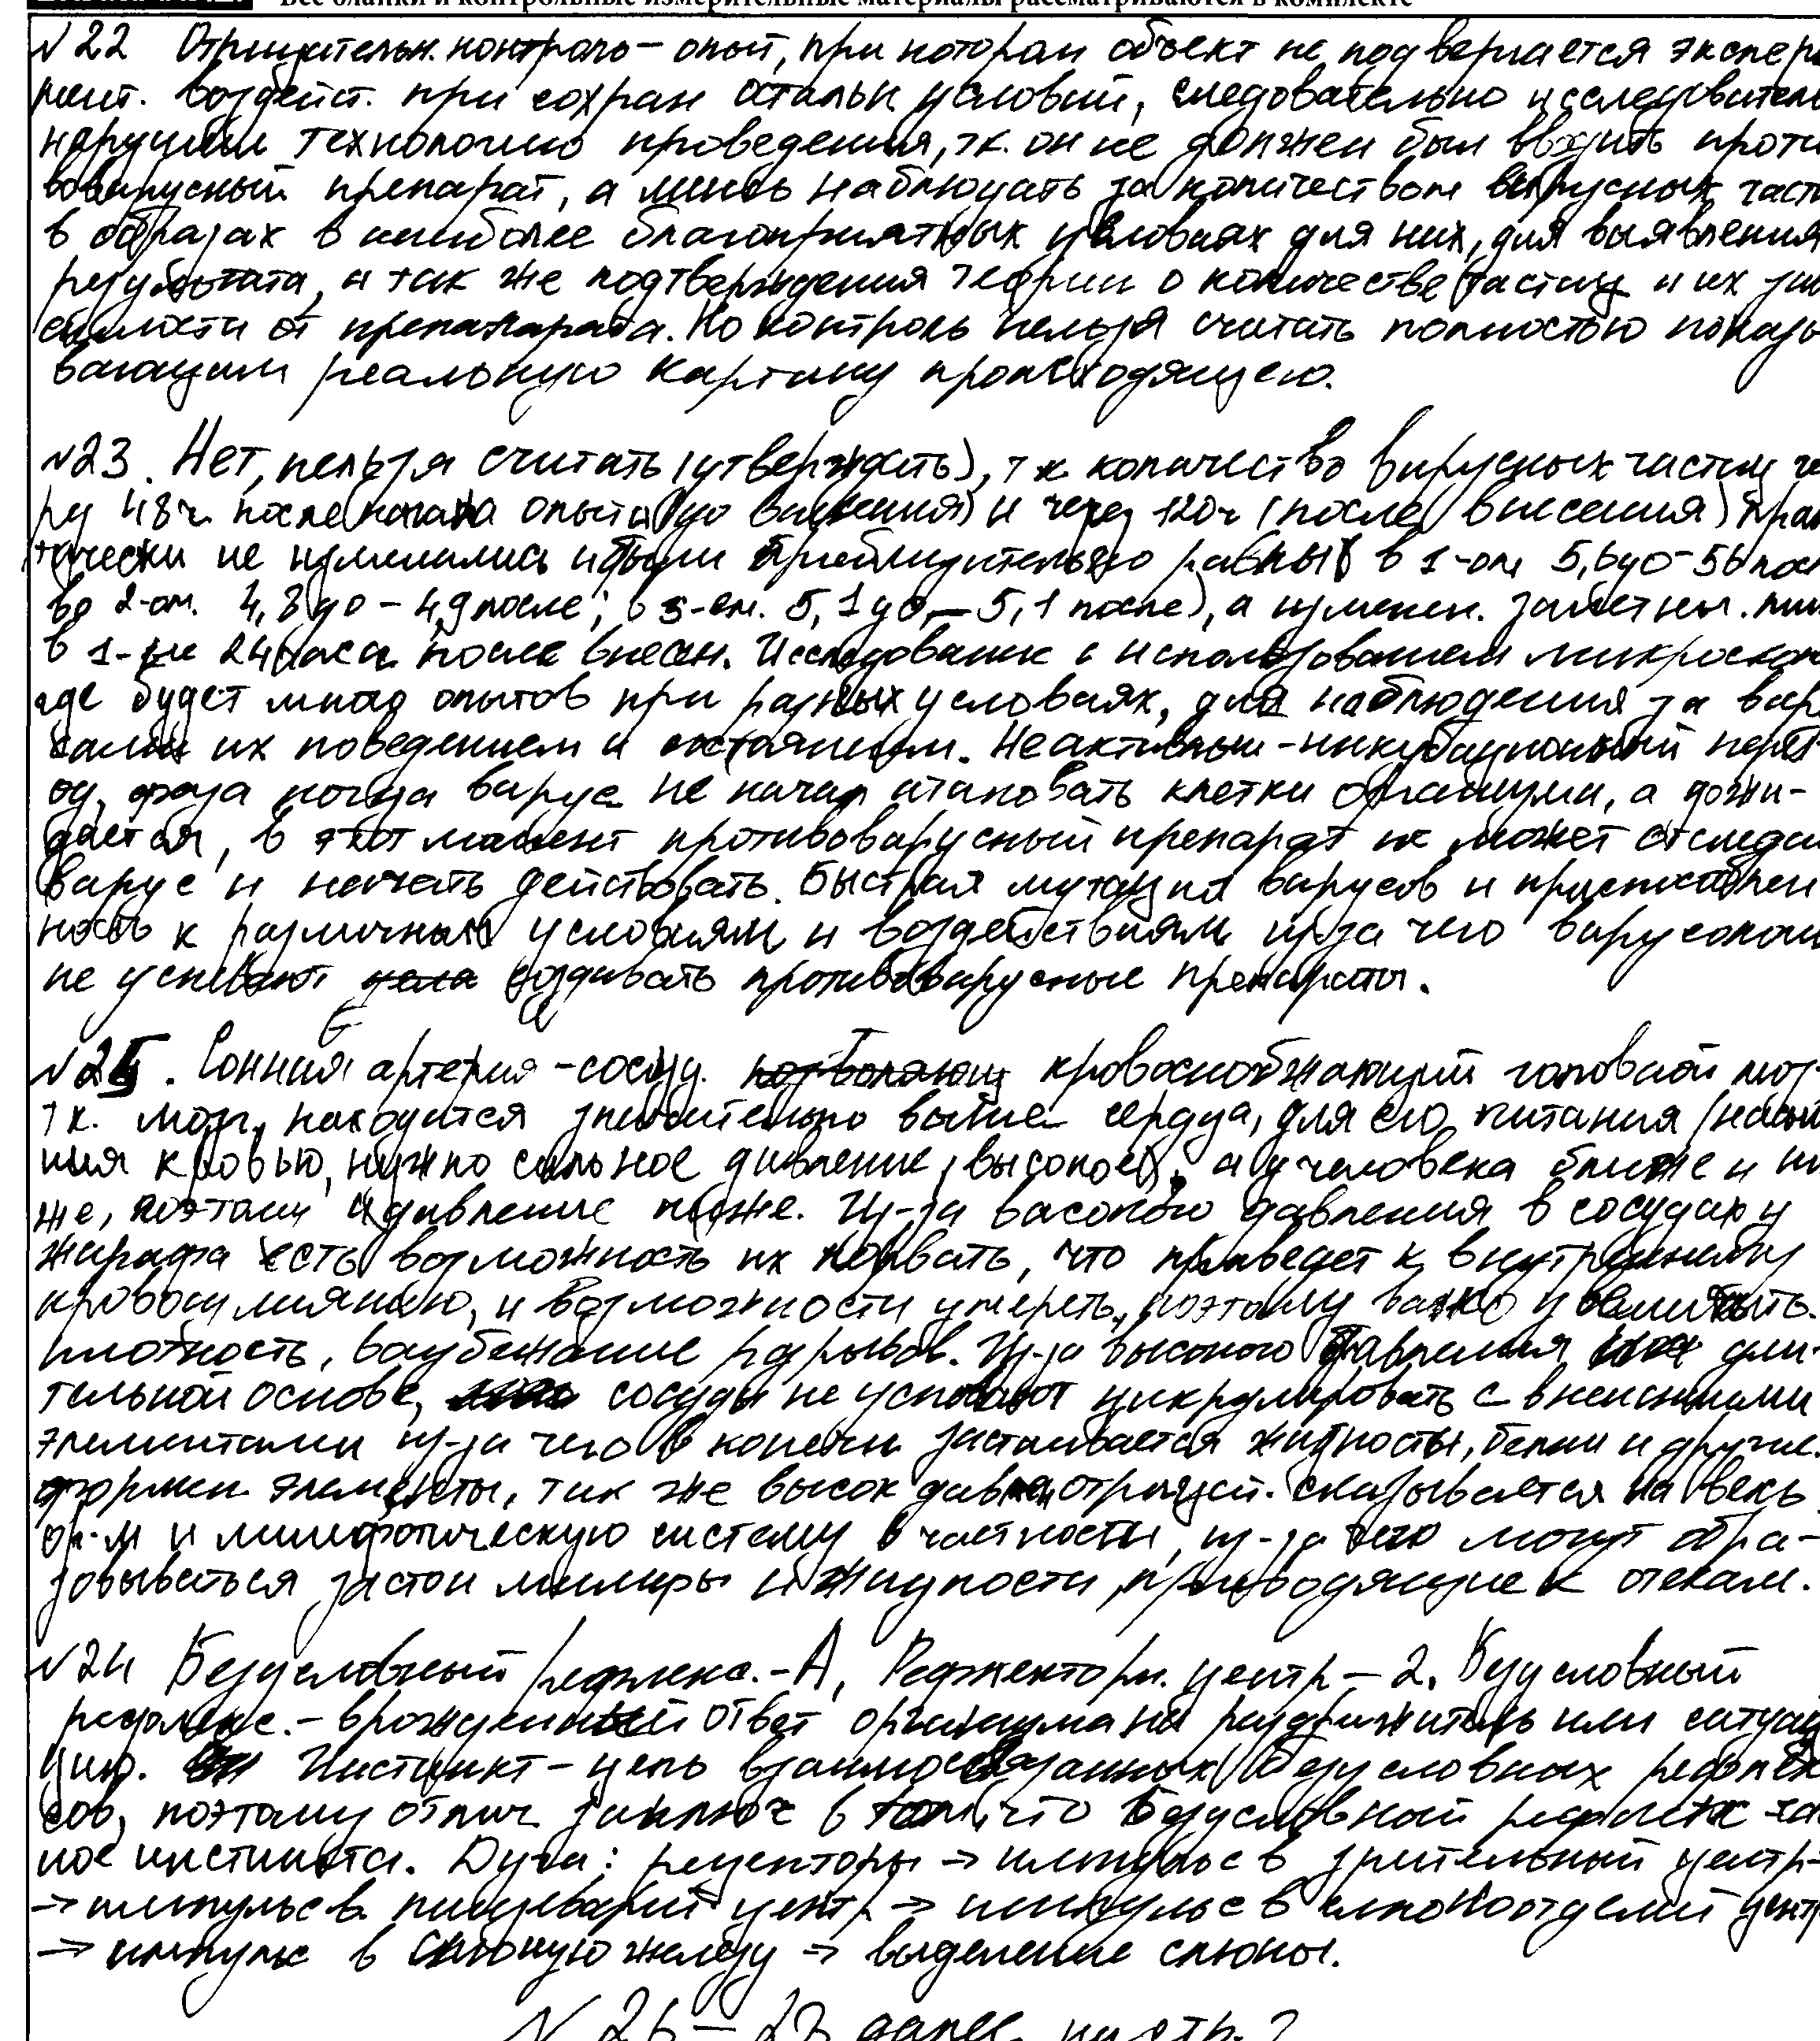 Все бланки и контрольные измерительные материалы рассматриваются в комплекте
№22 Отрицательн. контроль – опыт, при котором объект не подвергается экспери
мент. воздейст. при сохран остальн условий, следовательно исследовател
нарушил технологию проведения, т.к. он не должен был вводить проти
вовирусный препарат, а лишь наблюдать за количеством вирусных част
в образах в наиболее благоприятных условиях для них, для выявления
результата, а так же подтверждения теории о количестве частиц и их зави
симости от препаката. Но контроль нельзя считать полностью показы
вающим реальную картину происходящего.
№23. Нет, нельзя считать (утверждать), т к количество вирусных частиц че
рез 48ч. после начала опыта (до внесения) и через 120ч (после внесения) прак
тически не изменились и были приблизительно равны в 1-ом 5,6 до – 56 посл
во 2-ом. 4,8 до – 4,9 после; в 3-ем. 5,1 до – 5,1 после), а изменен. заметны. лиш
в 1-ые 24 часа после внесен. Исследование с использованием микроскоп
где будет много опытов при разных условиях, для наблюдения за вир
их поведением и состоянием. Неактивный – инкубационный пери-
од, фаза когда вирус не начал атаковать клетки организма, а дожи-
дается, в этот момент противовирусный препарат не может отследи
вирус и начать действовать. Быстрая мутация вирусов и приспособлен
ность к различным условиям и воздействиям из-за чего вирусологи
не успевают создавать противовирусные препараты.
№25. Сонная артерия – сосуд. кровоснабжающий головной моз-
т к. мозг находится значительно выше сердца, для его питания (насы
ния кровью, нужно сильное давление (высокое), а у человека ближе и ни
же, поэтому и давление ниже. Из-за высокого давления в сосудах у
жирафа есть возможность их порвать, что приведет к внутреннему
кровоизлиянию, и возможности умереть, поэтому важно увеличить.
плотность, воизбежание разрывов. Из-за высокого давления дли-
тельной основе, сосуды не успевают циркулировать с внешними
элементами из-за чего в конечн застаивается жидность, белки и другие.
формен элементы, так же высок давлен отрицат. сказывается на весь
ор-м и лимфотическую систему в частности, из-за чего могут обра-
зовываться застои лимфы и жидкости, приводящие к отекам.
№24 Безусловный рефлекс. – А, Рефлектори. центр – 2. Безусловный
рефлекс. – врожденный ответ организма на раздражитель или ситуац
цию. Инстинкт – цепь взаимосвязанных безусловных рефлек
сов, поэтому отлич заключ в том, что безусловный рефлекс
ное инстинкта. Дуга: рецепторы → импульс в зрительный центр
→ импульс в пищеварит центр → импульс в слюноотделит центр
→ импульс в слюную железу → выделение слюны.
№ 26 – 28 далее на стр. 2